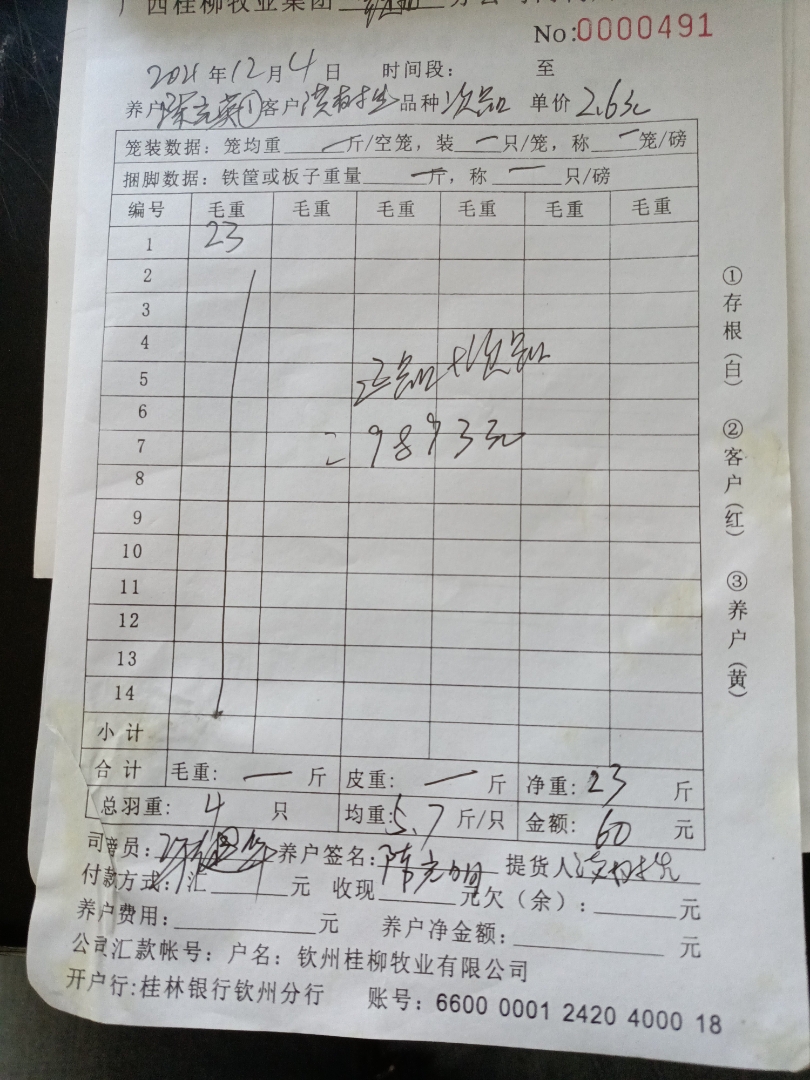 广西桂柳牧业集团
No:0000491
2021年12月4日 时间段： 至
养户 客户 品种 次品 单价 2.6元
笼装数据：笼均重 — 斤/空笼，装 — 只/笼，称 — 笼/磅
捆脚数据：铁筐或板子重量 — 斤，称 — 只/磅
编号 毛重 毛重 毛重 毛重 毛重 毛重
1 23
2
3
4
5
6
7
8
9
10
11
12
13
14
正品+次品
=9893元
小计
合计 毛重：— 斤 皮重：— 斤 净重：23 斤
总羽重：4 只 均重：5.7 斤/只 金额：60 元
司磅员： 养户签名： 提货人
付款方式：汇 元 收现 元欠（余）： 元
养户费用： 元 养户净金额： 元
公司汇款帐号：户名：钦州桂柳牧业有限公司
开户行:桂林银行钦州分行 账号：6600 0001 2420 4000 18
①存根（白） ②客户（红） ③养户（黄）